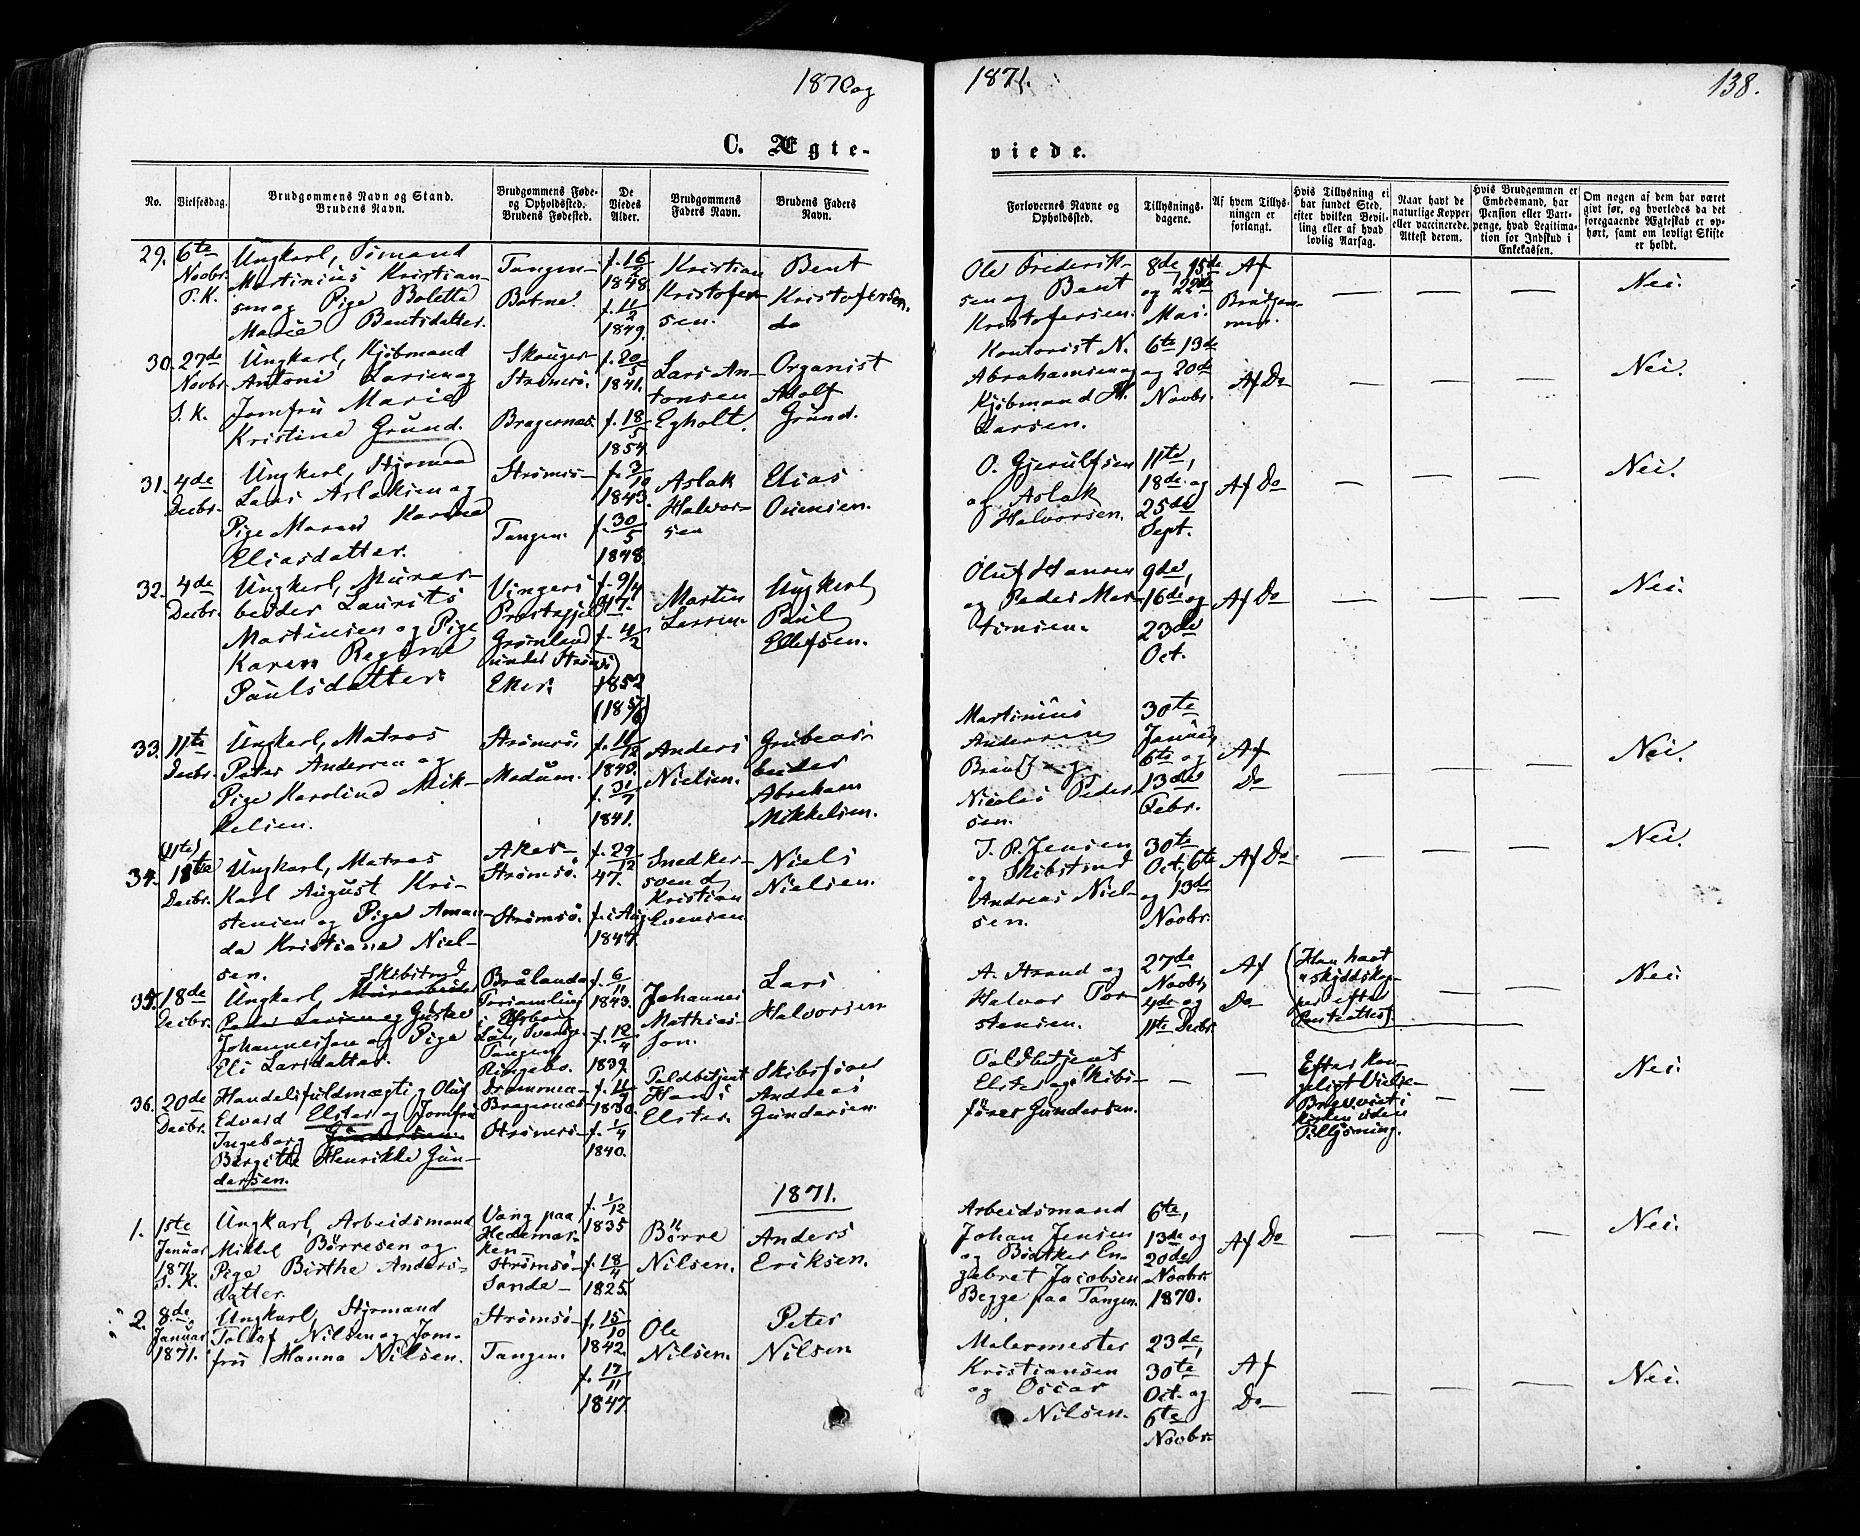 1870 og
1871.
138.
C. Ægte-
viede.
No.
Vielsesdag.
Brudgommens Navn og Stand.
Brudens Navn.
Brudgommens Føde-
og Opholdssted.
Brudens Fødested.
De
Viedes
Alder.
Brudgommens
Faders Navn.
Brudens Faders
Navn.
Forlovernes Navne og
Opholdssted.
Tillysnings-
dagene.
Af hvem Tillys-
ningen er
forlangt.
Hvis Tillysning ei
har fundet Sted,
efter hvilken Bevil-
ling eller af hvad
lovlig Aarsag.
Naar havt de
naturlige Kopper
eller vaccinerede.
Attest derom.
Hvis Brudgommen er
Embedsmand, har
Pension eller Vart-
penge, hvad Legitima-
tion for Indskud i
Enkekassen.
Om nogen af dem har været
gift før, og hvorledes da det
foregaaende Ægteskab er op-
hørt, samt om lovligt Skifte
er holdt.
29.
6te
Novbr.
T. K.
Ungkarl, Sømand
Martinius Kristian-
sen og Pige Bolette
Marie Bentsdatter.
Tangen
Botne.
f. 16/2
1848
f. 11/2
1849.
Kristian
Kristofer-
sen.
Bent
Kristofersen.
do
Ole Frederik-
sen og Bent
Kristofersen.
8de 15de
og 22de
Mai.
Af
Brudgom-
men.
— — —
Nei.
30.
27de
Novbr.
S. K.
Ungkarl, Kjöbmand
Antoni Larsen og
Jomfru Marie
Kristine Grund.
Skouger
Strömsö.
Bragernæs.
f. 20/5
1841.
f. 18/5
1854
Lars An-
tonsen
Egholt.
Organist
Adolf
Grund.
Kontorist N.
Abrahamsen og
Kjöbmand H.
Larsen.
6te 13de
og 20de
Novbr.
Af Do
— — —
Nei.
31.
4de
Decbr.
Ungkarl, Styrmand
Lars Aslaksen og
Pige Maren Karine
Eliasdatter.
Strömsö
Tangen.
f. 3/10
1843.
f. 30/5
1848.
Aslak
Halvor-
sen
Elias
Ounsen.
O. Gjerulfsen
og Aslak
Halvorsen.
11te,
18de og
25de
Sept.
Af Do
— — —
Nei.
32.
4de
Decbr.
Ungkarl, Murar-
beider Laurits
Martinsen og Pige
Karen Regine
Paulsdatter.
Vingers
Præstegjeld
Grönland
(under Strömsö)
Eker.
f. 9/4
47.
f. 4/2
1852
Martin
Larsen.
Ungkarl
Paul
Ellefsen.
Oluf Hansen
og Peder Mar-
tinsen.
9de,
16de og
23de
Oct.
Af Do
— — —
Nei.
33.
11te
Decbr.
Ungkarl, Matros
Peter Andersen og
Pige Karoline Mik-
kelsen.
Strömsö.
Modum.
f. 11/12
1840.
f. 31/7
1841.
Anders
Nielsen.
Grubear-
beider
Abraham
Mikkelsen.
Martinius
Andersen
Brandt og
Nicolai Peder-
sen.
30te
Januar,
6te og
13de
Febr.
Af
Do
— — —
Nei.
34.
(11te)
11te
Decbr.
Ungkarl, Matros
Karl August Kri-
stensen og Pige Aman-
da Kristiane Niel-
sen.
Aker
Strömsö.
Strömsö.
f. 29/12
47.
f. i Aug
1847.
Snedker-
svend
Kristian
Evensen
Niels
Nielsen.
J. P. Jensen
og Skibstmd
Andreas Niel-
sen.
30te
Oct, 6te
og 13de
Novbr.
Af Do
— — —
Nei.
35.
18de
Decbr.
Skibstmd
Ungkarl, Murarbeider
Peder Larsen og Gustav
Johannesson og Pige
Eli Larsdatter.
Brålanda
Forsamling
i Elfsborg
Län, Sverige.
Tangen
Ringebo.
f. 6/11
1843.
f. 12/4
1839.
Johannes
Mathias-
son.
Lars
Halvorsen
A. Strand og
Halvor Tor-
stensen.
27de
Novbr,
4de og
11te Decbr.
Af
Do
(Han havt
"skyddskop-
por efter
— —
Nei.
36.
20de
Decbr.
Handelsfuldmægtig Oluf
Edvard Elster og Jomfru
Ingeborg Gundersen
Birgitte Henrikke Gun-
dersen.
Drammen
Bragernæs
Strömsö
f. 11/7
1830.
f. 1/4
1840.
Toldbetjent
Hans
Elster.
Skibsförer
Andreas
Gundersen.
Toldbetjent
Elster og Skibs-
förer Gundersen.
—
—
Efter kon-
geligt Vielse-
Brev viet i
Kirken uden
Tillysning.
— —
Nei.
1871.
1.
1ste
Januar
1871.
S. K.
Ungkarl, Arbeidsmand
Mikkel Börresen og
Pige Birthe Anders-
datter.
Vang paa
Hedemar-
ken
Strömsö
Sande
f. 1/12
1835
f. 18/4
1825.
Börre
Nilsen.
Anders
Eriksen.
Arbeidsmand
Johan Jensen
og Bödtker En-
gebret Jacobsen
Begge paa Tangen.
6te,
13de og
20de
Novbr.
1870.
Af Do
— — —
Nei.
2.
8de
Januar
1871.
Ungkarl, Styrmand
Tollof Nilsen og Jom-
fru Hanna Nilsen.
Strömsö
Tangen.
f. 15/10
1842.
f. 17/11
1847.
Ole
Nilsen.
Peter
Nilsen
Malermester
Kristiansen
og Oscar
Nilsen.
23de,
30te
Oct. og
6te
Novbr.
Af
Do
— — —
Nei.